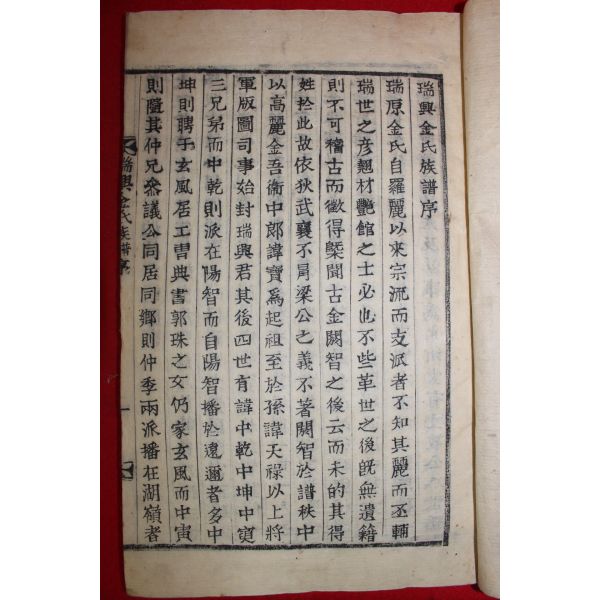 瑞興金氏族譜序
瑞原金氏自羅麗以來宗流而支派者不知其麗而丕輔
瑞世之彦翹材艷館之士必也不些革世之後旣無遺籍
則不可稽古而徵得槩聞古金閼智之後云而未的其得
姓於此故依狄武襄不冐梁公之義不著閼智於譜秩中
以高麗金吾衛中郞諱寶爲起祖至於孫諱天祿以上將
軍版圖司事始封瑞興君其後四世有諱中乾中坤中寅
三兄弟而中乾則派在陽智而自陽智播於遠邇者多中
坤則聘于玄風居工曺典書郭珠之女仍家玄風而中寅
則隨其仲兄叅議公同居同鄕則仲季兩派播在湖嶺者
瑞興金氏族譜序
一